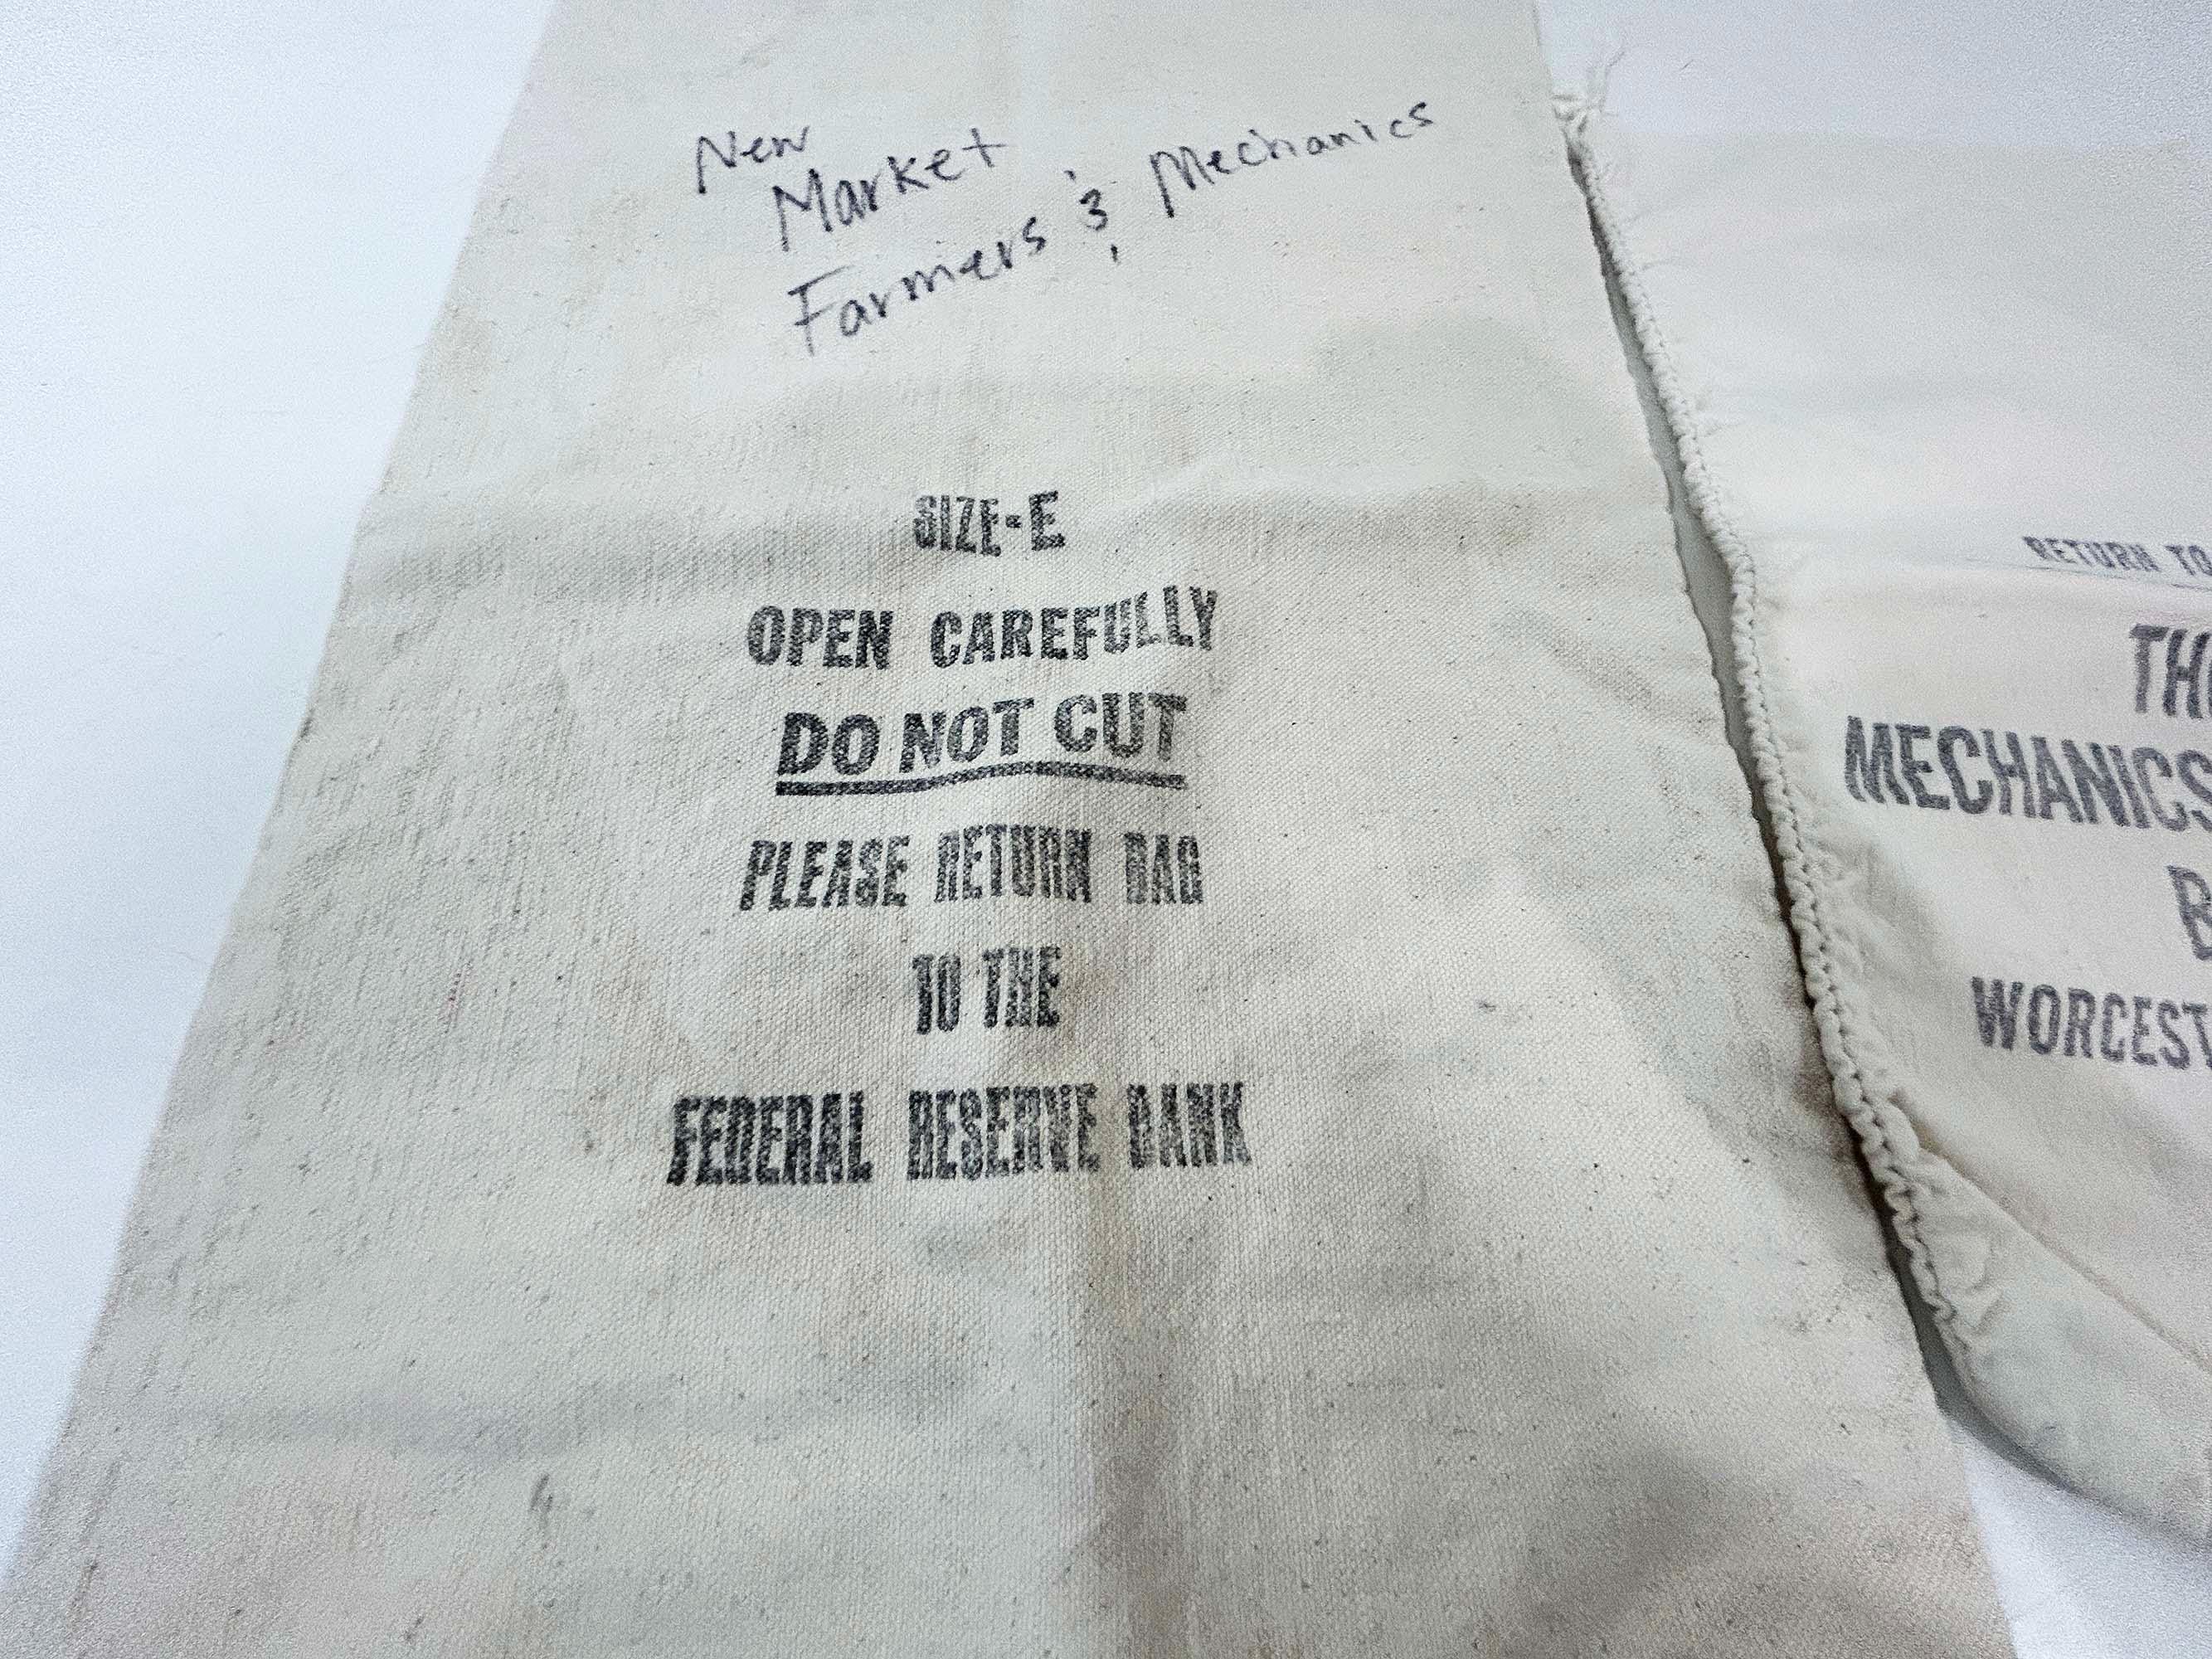 New
Market
Farmers & Mechanics
SIZE-E
OPEN CAREFULLY
DO NOT CUT
PLEASE RETURN BAG
TO THE
FEDERAL RESERVE BANK
RETURN TO
TH
MECHANICS
B
WORCEST